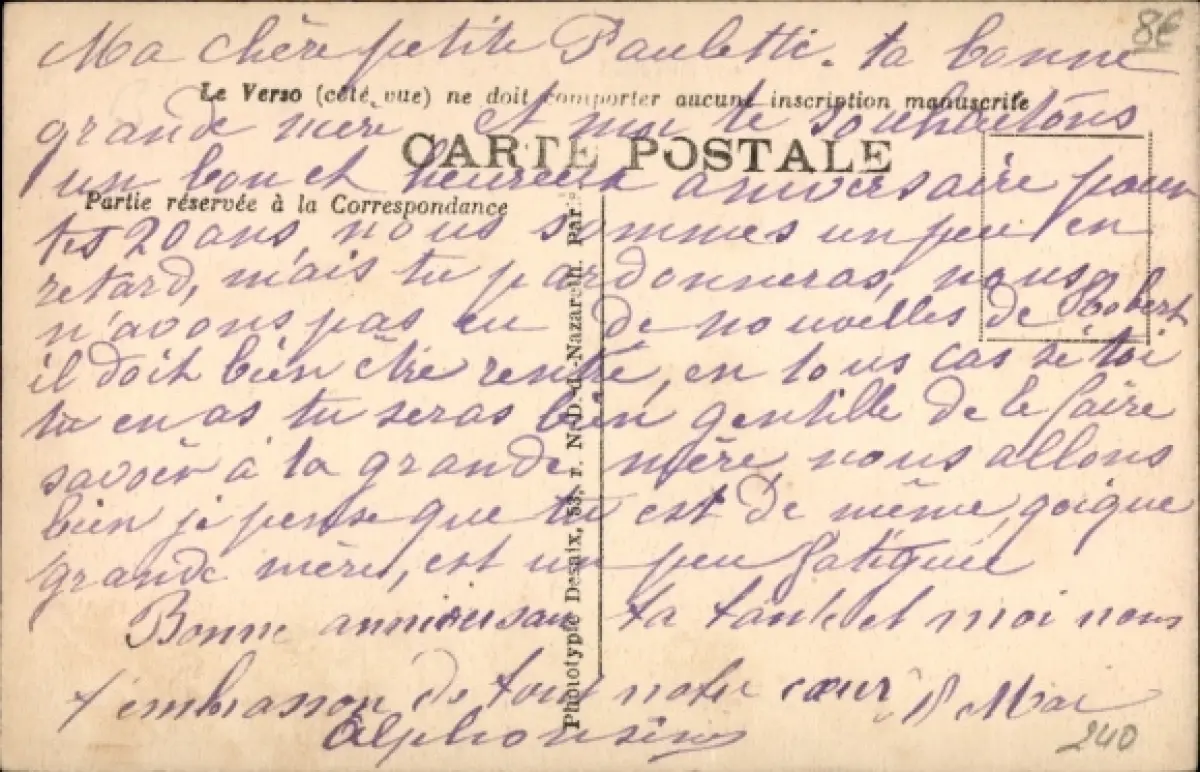 8€
Ma chère petite Paulette. ta bonne
Le Verso (côté vue) ne doit comporter aucune inscription manuscrite
grande mère et moi te souhaitons
CARTE POSTALE
un bon et heureux aniversaire pour
Partie réservée à la Correspondance
tes 20 ans, nous sommes un peu en
retard, mais tu pardonneras, nous
n'avons pas eu de nouvelles de Robert
il doit bien être rentré, en tous cas si toi
tu en as tu seras bien gentille de le faire
savoir à ta grande mère, nous allons
bien je pense que tu est de même, qoique
grande mère, est un peu fatiguée
Bonne anniversaire ta tante et moi nous
t'embrasson de tout notre cœur 8 Mai
Alphonsine
240
Phototypie Desaix, 53, r. N.-D.-d.-Nazareth. Paris